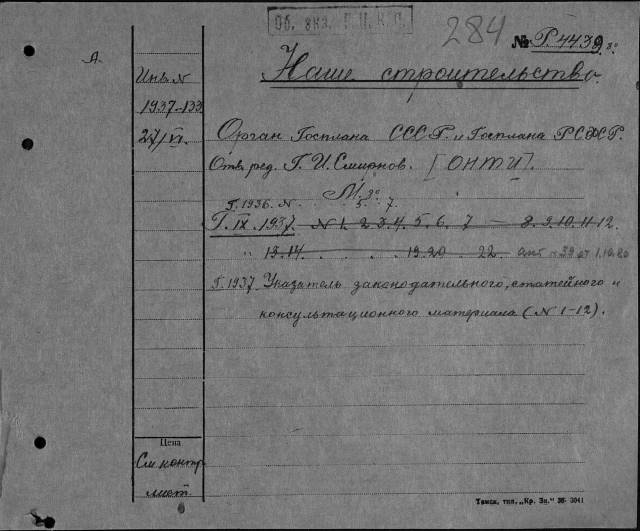 Об. экз. Г.П.К.О.
284
№ Р4439
А.
Наше строительство.
Инв. №
1937-133
27/VI.
Орган Госплана СССР. и Госплана РСФСР.
Отв. ред. Г. И. Смирнов. [ОНТИ].
М. 3°
Г. 1936. N. 5. 7.
Г. IX. 1937. N 1. 2. 3. 4. 5. 6. 7 — 8. 9. 10. 11-12.
" 13-14. . . . . 19-20. 22. акт № 39 от 1.10.80
Г. 1937. Указатель законодательного, статейного и
консультационного материала (N 1-12).
Цена
См. контр.
лист.
Томск, тип. „Кр. Зн." 36- 3041